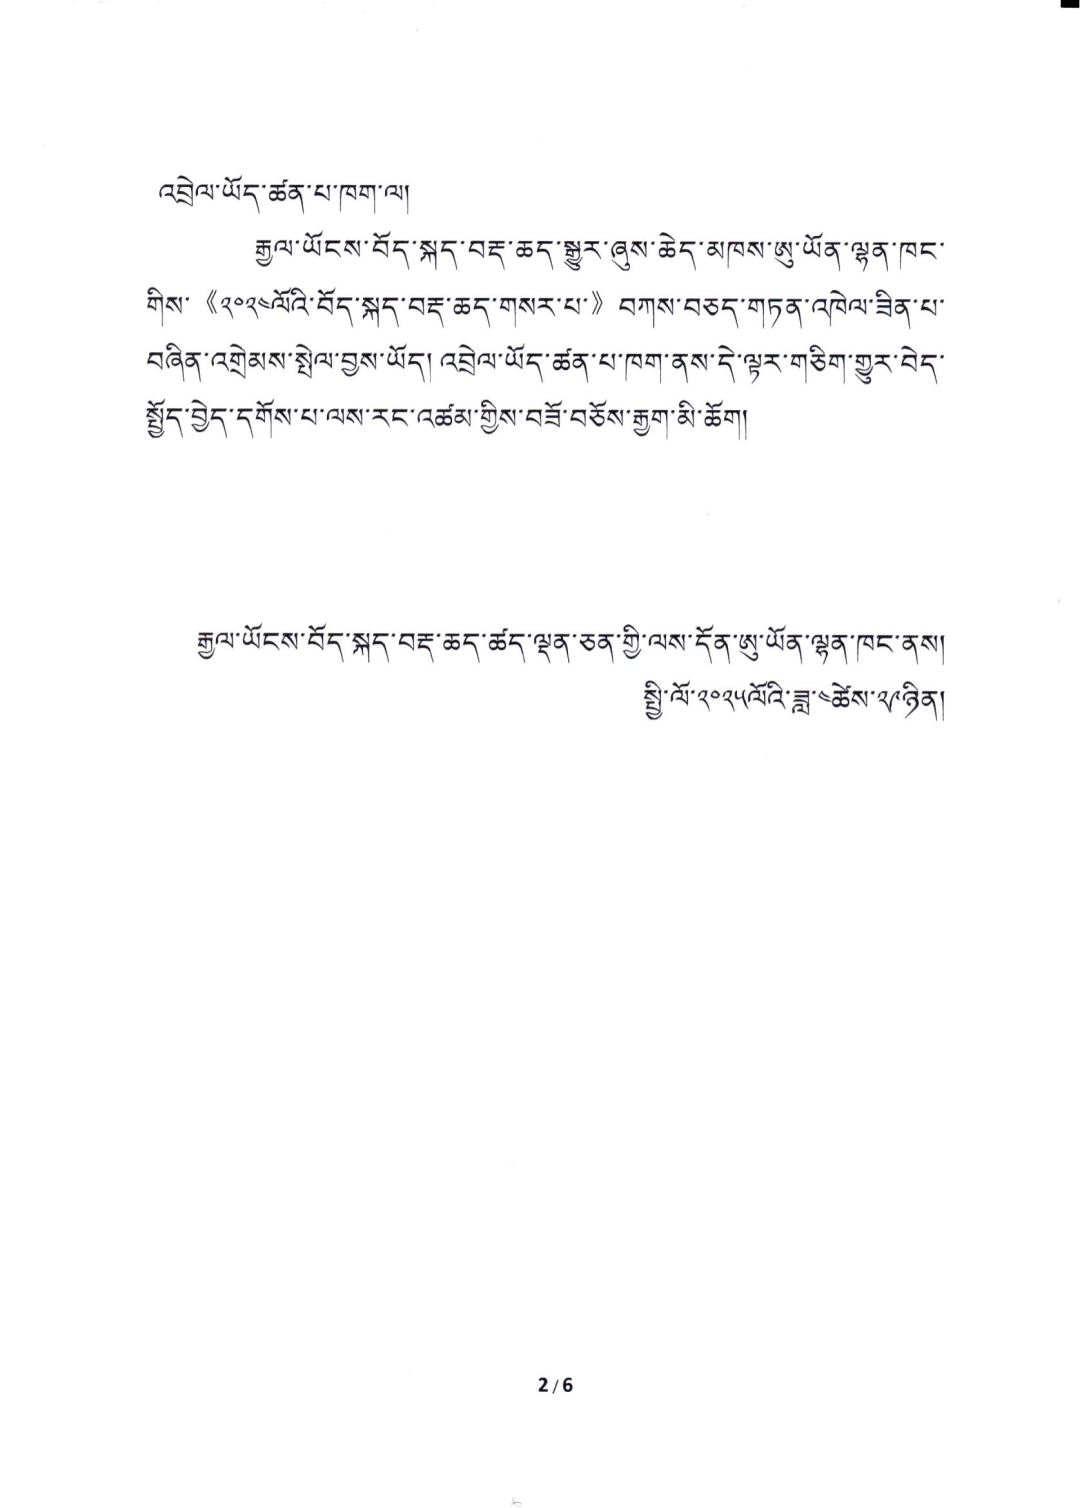 འབྲེལ་ཡོད་ཚན་པ་ཁག་ལ།
རྒྱལ་ཡོངས་བོད་སྐད་བརྡ་ཆད་སྒྱུར་ཞུས་ཆེད་མཁས་ཨུ་ཡོན་ལྷན་ཁང་
གིས་《༢༠༢༤ལོའི་བོད་སྐད་བརྡ་ཆད་གསར་པ་》བཀས་བཅད་གཏན་འཁེལ་ཟིན་པ་
བཞིན་འགྲེམས་སྤེལ་བྱས་ཡོད། འབྲེལ་ཡོད་ཚན་པ་ཁག་ནས་དེ་ལྟར་གཅིག་གྱུར་བེད་
སྤྱོད་བྱེད་དགོས་པ་ལས་རང་འཚམ་གྱིས་བཟོ་བཅོས་རྒྱག་མི་ཆོག།
རྒྱལ་ཡོངས་བོད་སྐད་བརྡ་ཆད་ཚད་ལྡན་ཅན་གྱི་ལས་དོན་ཨུ་ཡོན་ལྷན་ཁང་ནས།
སྤྱི་ལོ་༢༠༢༥ལོའི་ཟླ་༤ཚེས་༢༩ཉིན།
2 / 6